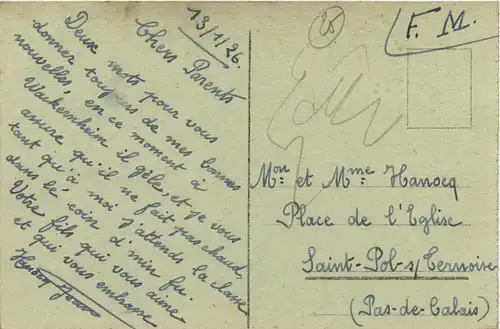 13/1/26.
Chers Parents
Deux mots pour vous
donner toujours de mes bonnes
nouvelles, en ce moment à
Wackernheim il gèle, et je vous
assure qu'il ne fait pas chaud,
tant qu'à moi j'attends la classe
dans le coin d'min fu.
Votre fils qui vous aime
et qui vous embrasse
25
F. M.
Mon et Mme Hanocq
Place de l'Eglise
Saint-Pol-s/Ternoise
(Pas-de-Calais)